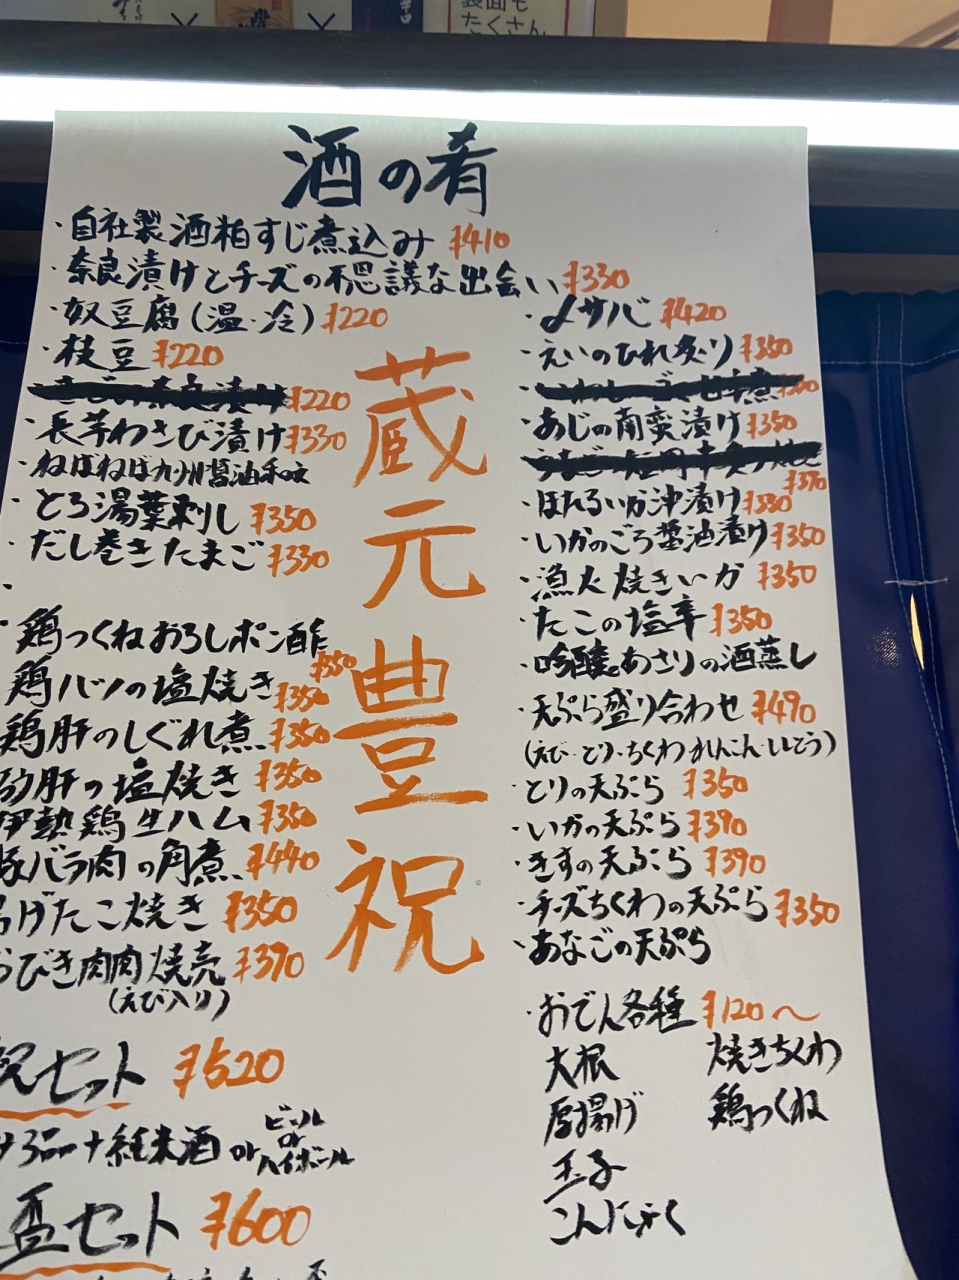 製面も
たくさん
酒の肴
・自社製酒粕すじ煮込み ¥410
・奈良漬けとチーズの不思議な出会い ¥330
・奴豆腐(温・冷) ¥220
・枝豆 ¥220
¥220
・長芋わさび漬け ¥330
・ねばねば九州醤油和え
・とろ湯葉刺し ¥350
・だし巻きたまご ¥330
・鶏つくねおろしポン酢 ¥350
鶏ハツの塩焼き ¥350
鶏肝のしぐれ煮 ¥350
砂肝の塩焼き ¥350
伊勢鶏生ハム ¥350
豚バラ肉の角煮 ¥440
揚げたこ焼き ¥350
びき肉焼売 ¥390
(えび入り)
祝セット ¥520
3品+純米酒 or ビール or ハイボール
盃セット ¥600
蔵元豊祝
・〆サバ ¥420
・えいのひれ炙り ¥350
・あじの南蛮漬け ¥350
¥390
・ほたるいか沖漬け ¥330
・いかのごろ醤油漬け ¥350
・漁火焼きいか ¥350
・たこの塩辛 ¥350
・吟醸あさりの酒蒸し
・天ぷら盛り合わせ ¥490
(えび・とり・ちくわ・れんこん・いとう)
・とりの天ぷら ¥350
・いかの天ぷら ¥390
・きすの天ぷら ¥390
・チーズちくわの天ぷら ¥350
・あなごの天ぷら
・おでん各種 ¥120〜
大根 焼きちくわ
厚揚げ 鶏つくね
玉子
こんにゃく